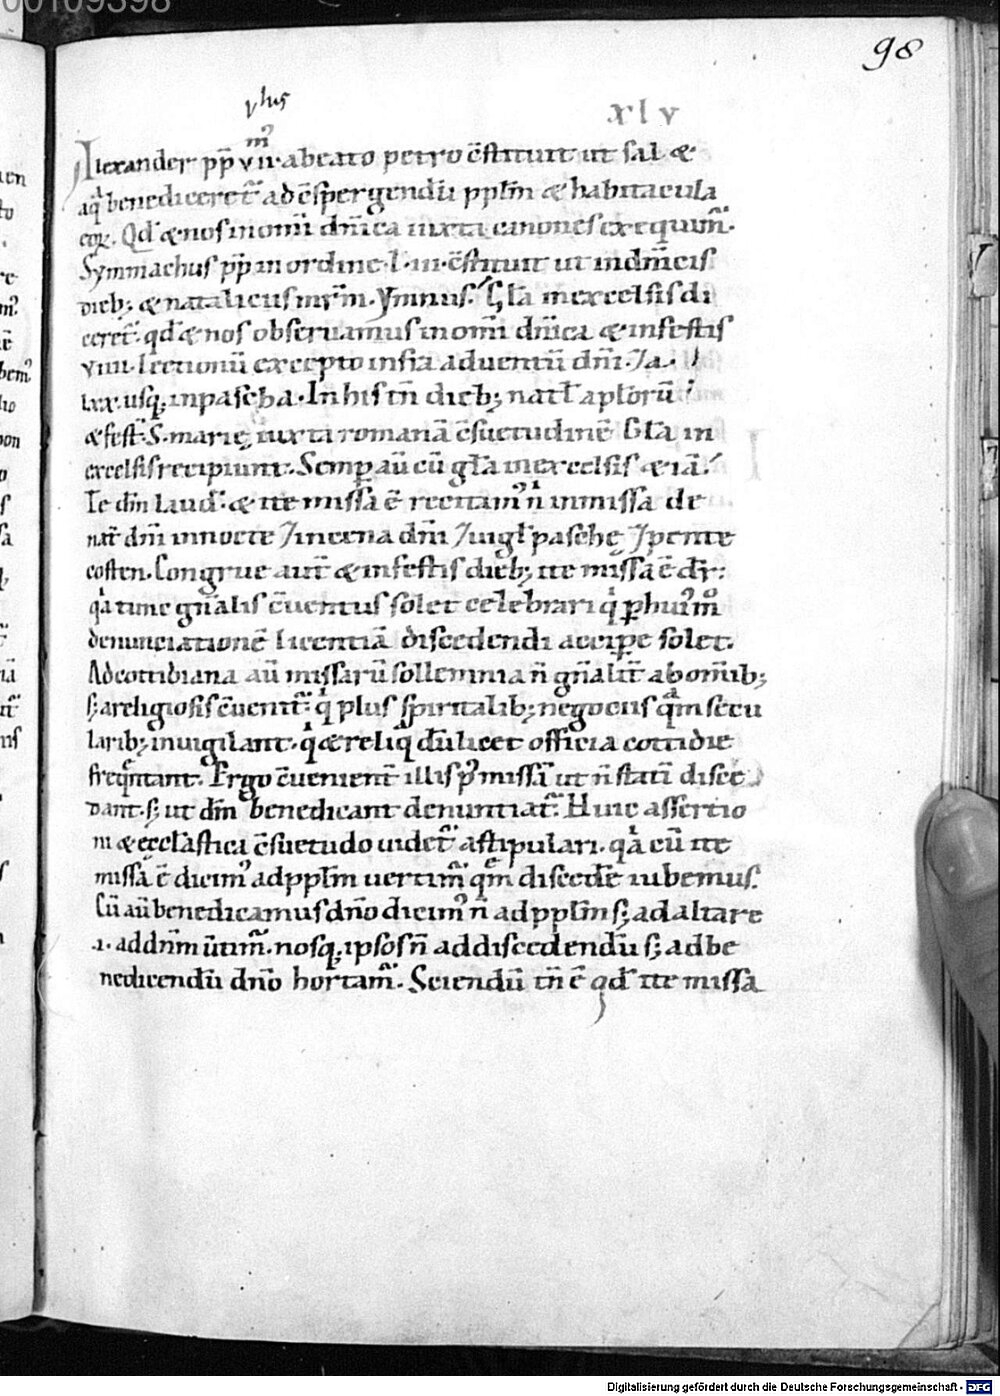 00109398
98
xlv
Alexander pp̄ vii. a beato petro c̄stituit ut sal &
aq̄ benediceret᷑ ad c̄spergendū pplm̄ & habitacula
eoꝝ. Qđ & nos in om̄i dn̄ica iuxta canones exequim᷑.
Symmachus pp̄ in ordine .l.iii. c̄stituit ut in dn̄icis
dieb; & nataliciis mr̄m. ymnus. Gl̄a in excelsis di
ceret᷑. qđ & nos obseruamus in om̄i dn̄ica & in festis
viiii. lectionū excepto infra aduentū dn̄i. 7 a .
lxx. usq; in pascha. In his tn̄ dieb; natl̄ aplorū
& fest̄ S. marię iuxta romanā c̄suetudinē Gl̄a in
excelsis recipiunt. Semp̱ aū cū gl̄a in excelsis &iā
Te dm̄ laud᷑. & ite missa ē recitam᷑ n̄ in missa de
nat̄ dn̄i in nocte 7 in cena dn̄i 7 uigl̄ paschę 7 pente
costen. Congrue aut̄ & in festis dieb; ite missa ē dr̄:
q̄a tunc gn̄alis c̄uentus solet celebrari q̄ p̱ hui᷑m̊
denunciationē licentiā discedendi accip̱e solet.
Ad cottidiana aū missarū sollemnia n̄ gn̄alit̄ ab om̄ib;
s; a religiosis c̄uenit᷑. q̄ plus spiritalib; negociis q̄m secu
larib; inuigilant. q̄ & reliq̄ dū licet officia cottidie
freq̄ntant. Ergo c̄uenient̄ illis p᷑ missā ut n̄ statī disce
dant. s; ut dm̄ benedicant denuntiat᷑. Huic assertio
ni & eccl̄astica c̄suetudo uidet᷑ astipulari. q̄a cū ite
missa ē dicim᷑ ad pplm̄ uertim᷑ q̄m discede᷑ iubemus.
Cū aū benedicamus dn̄o dicim᷑ n̄ ad pplm̄ s; ad altare
.i. ad dn̄m ūtim᷑. nosq; ipsos n̄ ad discedendū s; ad be
nedicendū dn̄o hortam᷑. Sciendū tn̄ ē qđ ite missa
Digitalisierung gefördert durch die Deutsche Forschungsgemeinschaft - DFG